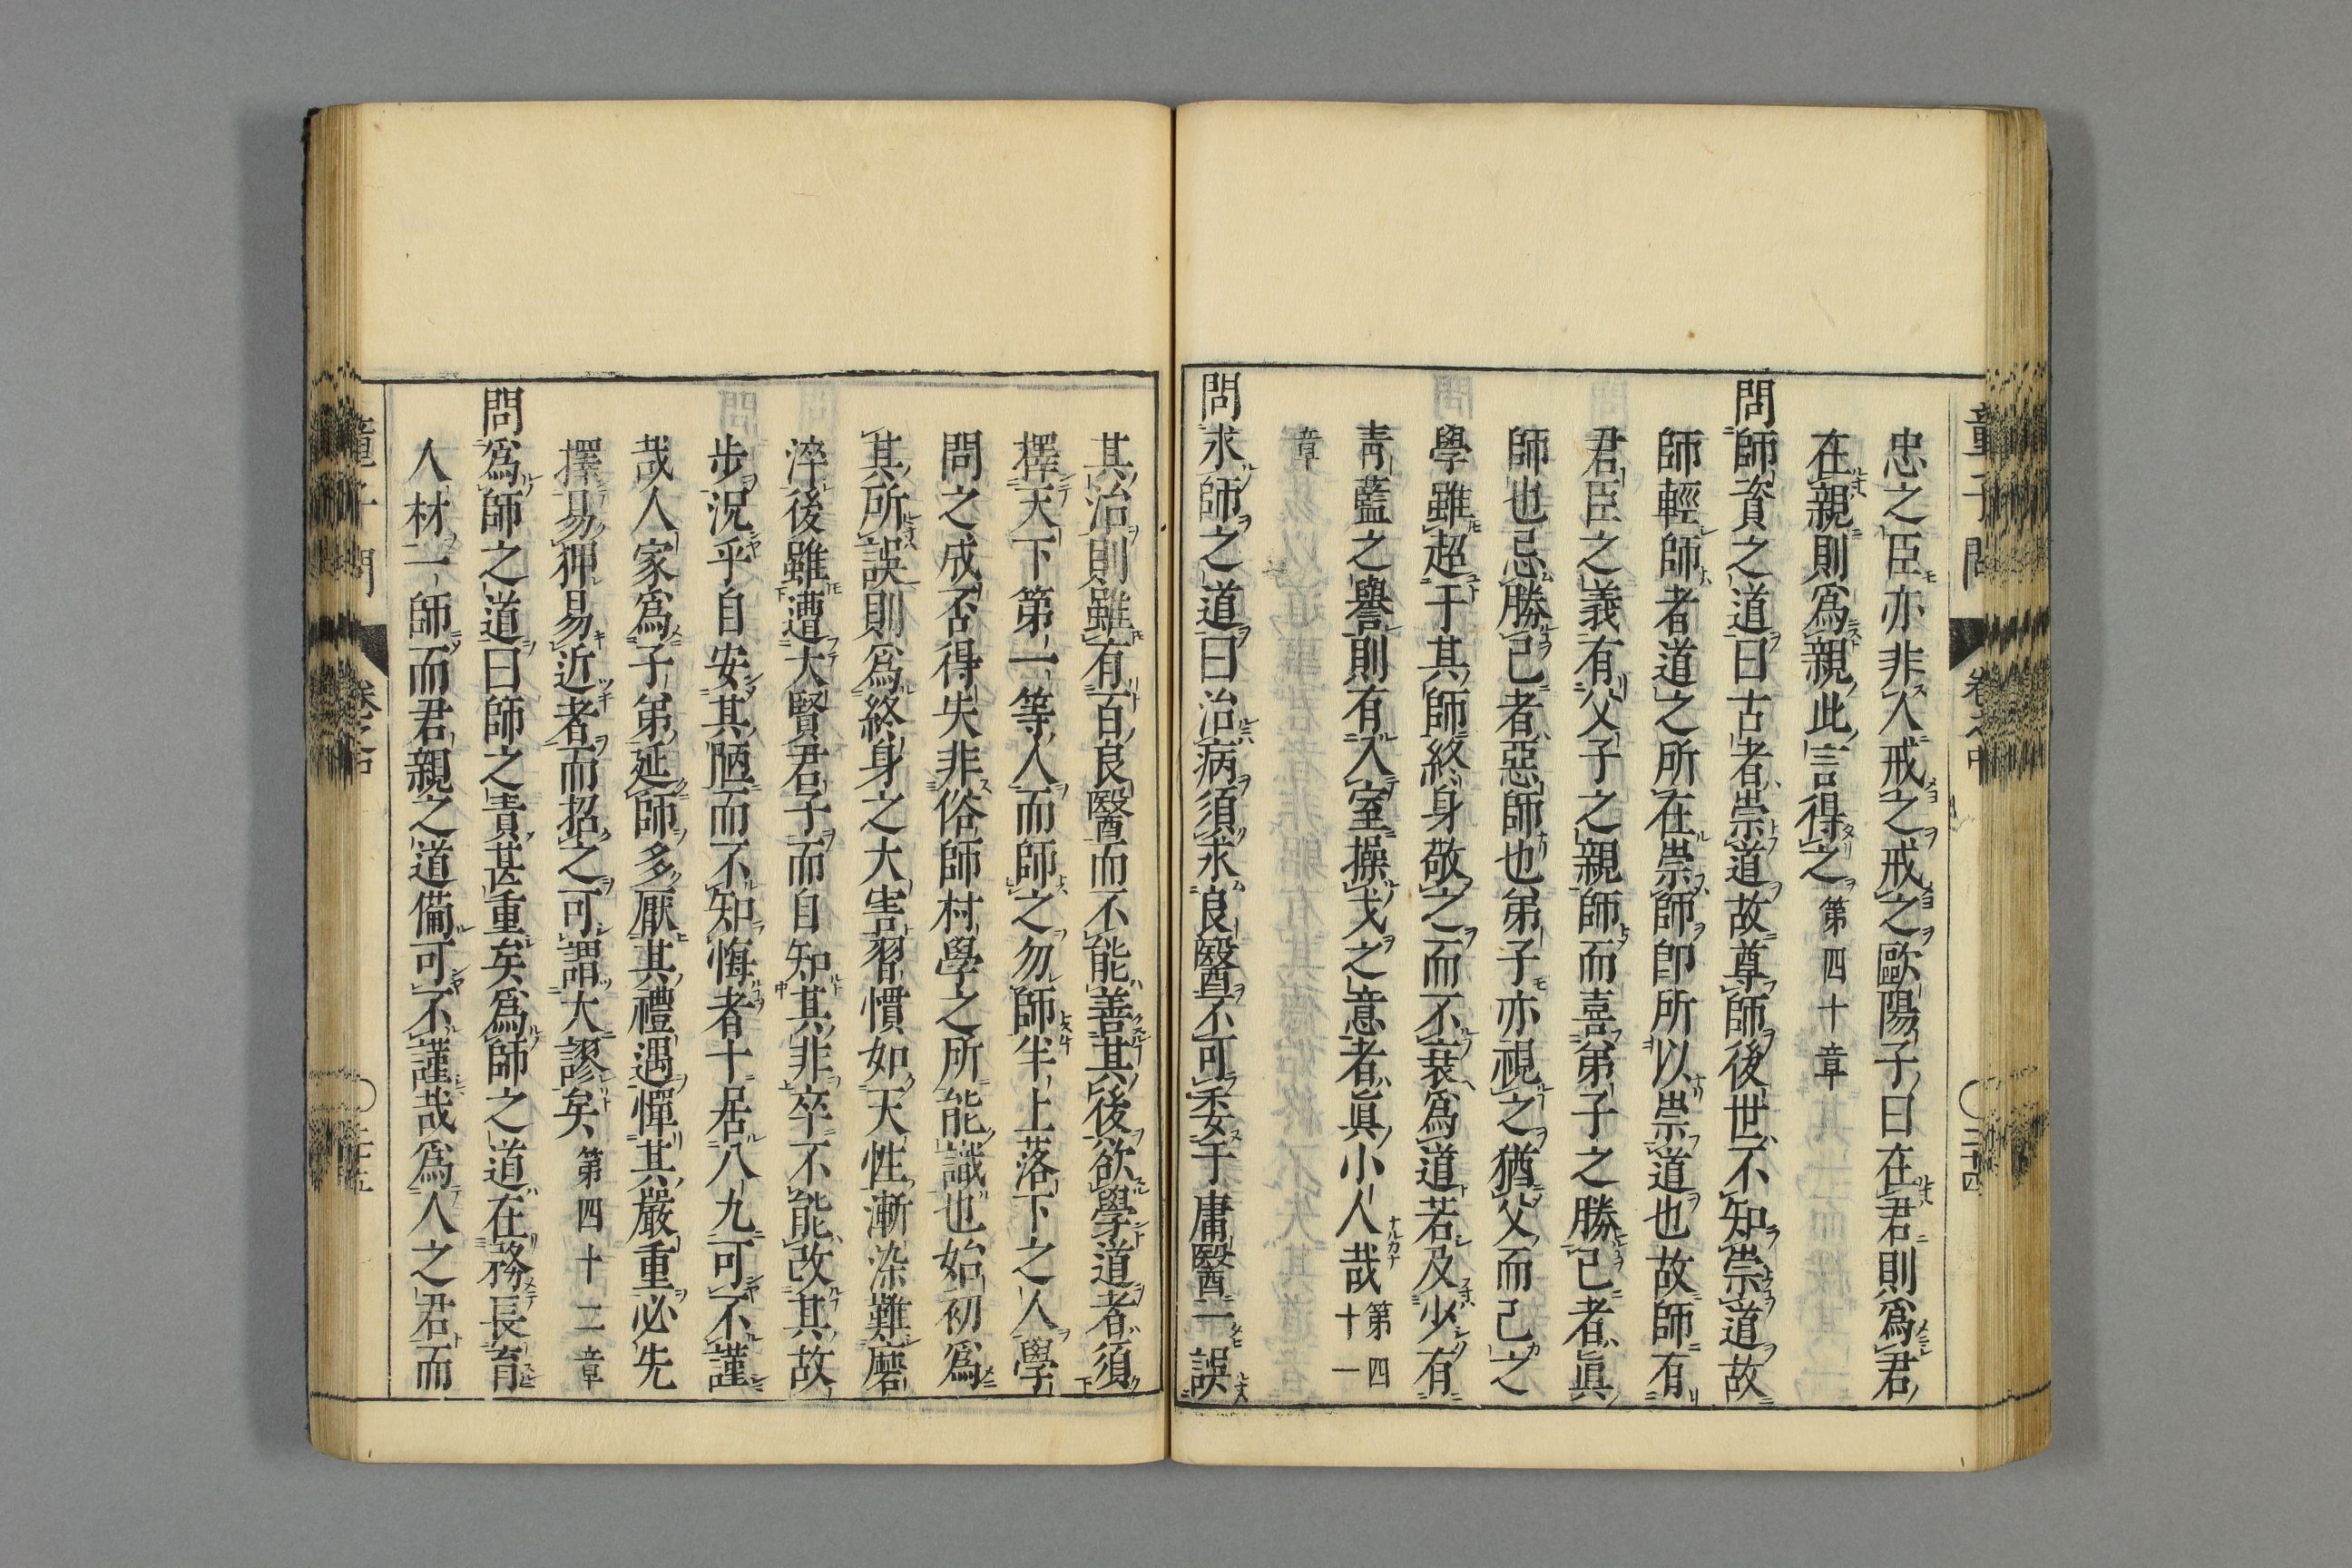 忠之臣亦非人戒之戒之歐陽子曰在君則爲君
在親則爲親此言得之第四十章
問師資之道曰古者崇道故尊師後世不知崇道故
師輕師者道之所在崇師卽所以崇道也故師有
君臣之義有父子之親師而喜弟子之勝己者眞
師也忌勝己者惡師也弟子亦視之猶父而己之
學雖超于其師終身敬之而不衰爲道若及少有
青藍之譽則有入室操戈之意者眞小人哉第四十一
章
問求師之道曰治病須求良醫不可委于庸醫一誤
其治則雖有百良醫而不能善其後欲學道者須
擇天下第一等人而師之勿師半上落下之人學
問之成否得失非俗師村學之所能識也始初爲
其所誤則爲終身之大害習慣如天性漸染難磨
淬後雖遭大賢君子而自知其非卒不能改其故
步況乎自安其陋而不知悔者十居八九可不謹
哉人家爲子弟延師多厭其禮遇憚其嚴重必先
擇易狎易近者而招之可謂大謬矣第四十二章
問爲師之道曰師之責甚重矣爲師之道在務長育
人材一師而君親之道備可不謹哉爲人之君而
童子問
卷之中
三十四